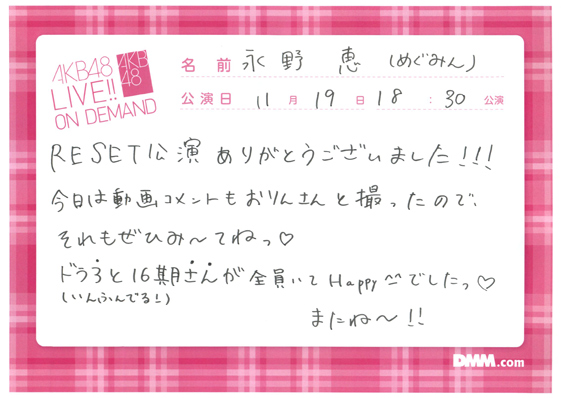 AKB48
LIVE!!
ON DEMAND
AKB
48
名 前 永野 恵 (めぐみん)
公演日 11 月 19 日 18 : 30 公演
RESET公演 ありがとうございました!!!
今日は動画コメントもおりんさんと撮ったので、
それもぜひみ〜てねっ♡
ドラ3と16期さんが全員いてHappy^^でしたっ♡
(いんふんでる!)
またね〜!!
DMM.com